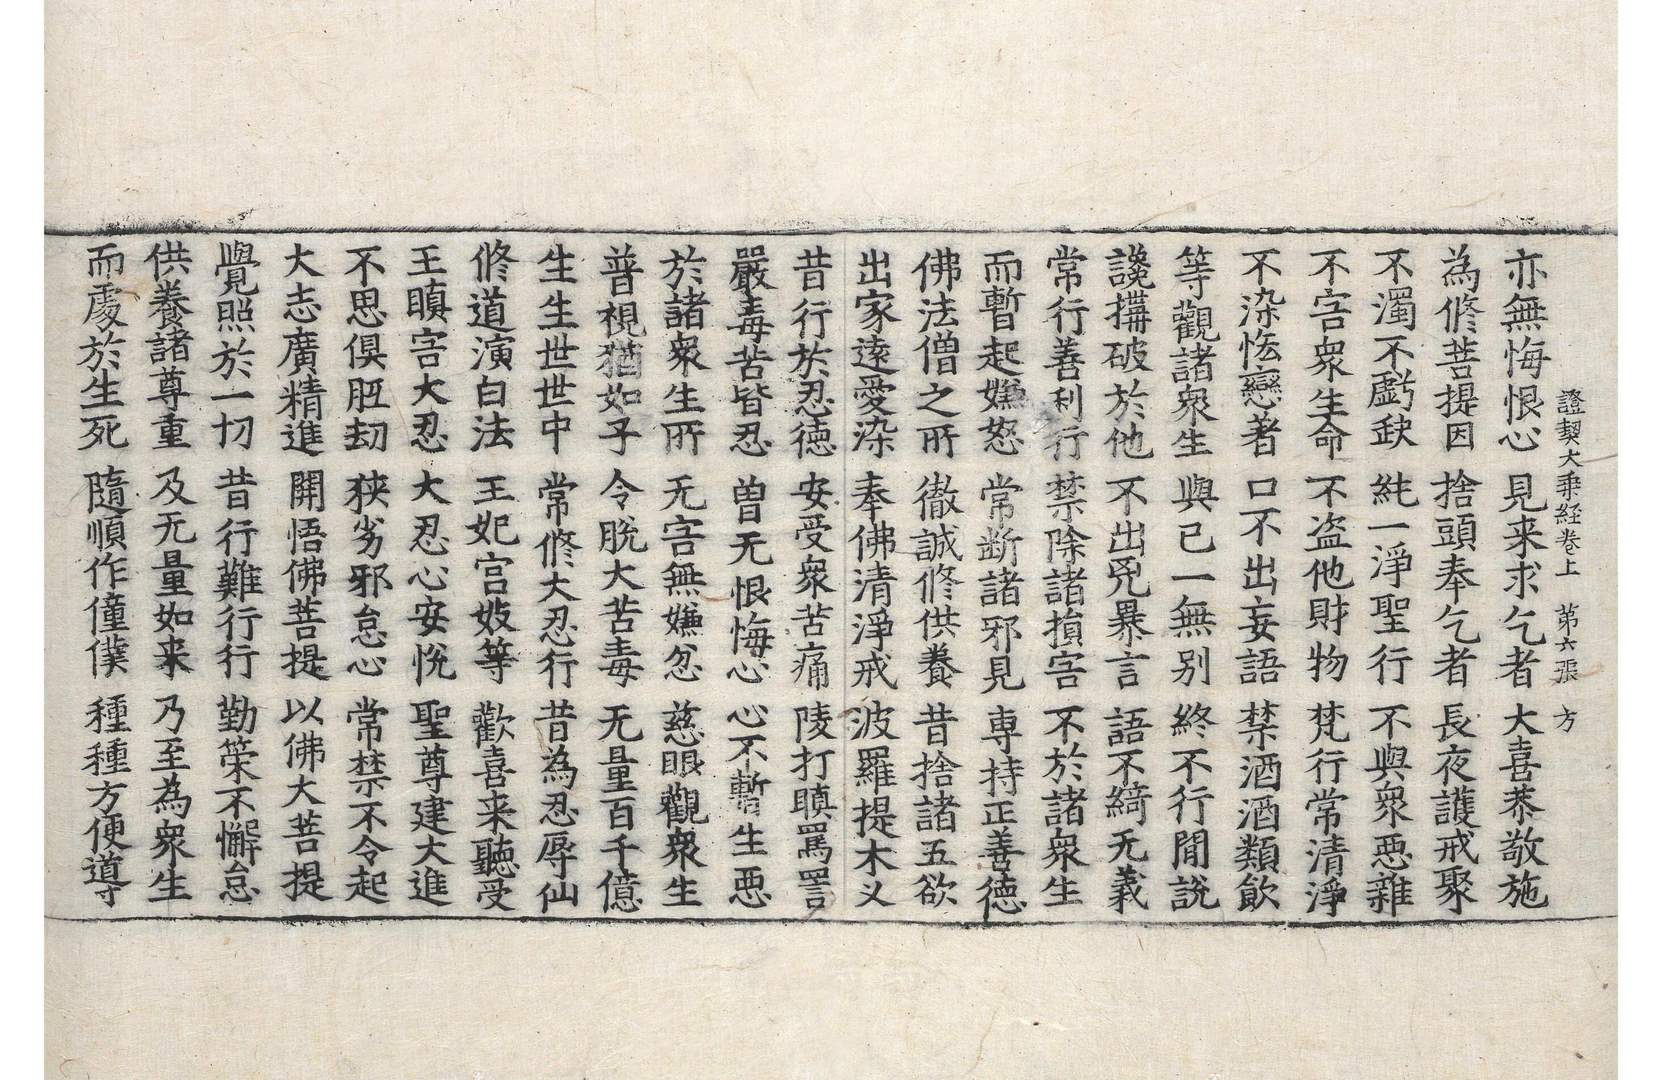 證契大乘経卷上 第六張 方
亦無悔恨心 見来求乞者 大喜恭敬施
為脩菩提因 捨頭奉乞者 長夜護戒聚
不濁不虧缺 純一淨聖行 不與衆惡雜
不害衆生命 不盗他財物 梵行常清淨
不染恡戀著 口不出妄語 禁酒酒類飲
等觀諸衆生 與已一無别 終不行閒說
讒搆破於他 不出兇暴言 語不綺无義
常行善利行 禁除諸損害 不於諸衆生
而暫起嫌怒 常断諸邪見 專持正善德
佛法僧之所 徹誠脩供養 昔捨諸五欲
出家遠愛染 奉佛清淨戒 波羅提木叉
昔行於忍德 安受衆苦痛 陵打瞋罵詈
嚴毒苦皆忍 曽无恨悔心 心不暫生惡
於諸衆生所 无害無嫌忿 慈眼觀衆生
普視猶如子 令脫大苦毒 无量百千億
生生世世中 常脩大忍行 昔為忍辱仙
脩道演白法 王妃宫妓等 歡喜来聽受
王瞋害大忍 大忍心安恱 聖尊建大進
不思俱胝劫 狭劣邪怠心 常禁不令起
大志廣精進 開悟佛菩提 以佛大菩提
覺照於一切 昔行難行行 勤策不懈怠
供養諸尊重 及无量如来 乃至為衆生
而處於生死 隨順作僮僕 種種方便導